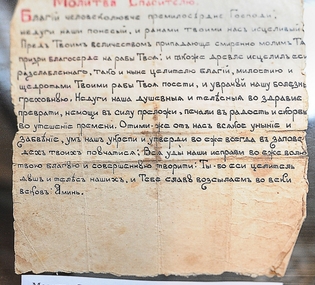 Молитва Спасителю.
Благiй человеколюбче премилосердне Господи,
недуги наши понесый, и ранами твоими нас исцеливый
Предъ Твоимъ величествомъ припадающе смиренно молимъ Тя
призри благосердно на рабы Твоя: и якоже древле исцелилъ еси
разслабленнаго, тако и ныне целителю благiй, милостiю и
щедротами Твоими рабы Твоя посети, и уврачуй нашу болезнь
греховную. Недуги наша душевныя и телесныя во здравiе
преврати, немощи въ силу преложи, печали въ радость и скорбь
во утешенiе пременi. Отими-же отъ насъ всякое унынiе и
забвенiе, умъ нашъ укрепи и утверди во еже всегда въ запове-
дехъ твоихъ поучатися; Вся уды наши исправи во еже волю
твою благую и совершенную творити: Ты-бо еси целитель
душъ и телесъ нашихъ, и Тебе славу возсылаемъ во веки
вековъ. Аминь.